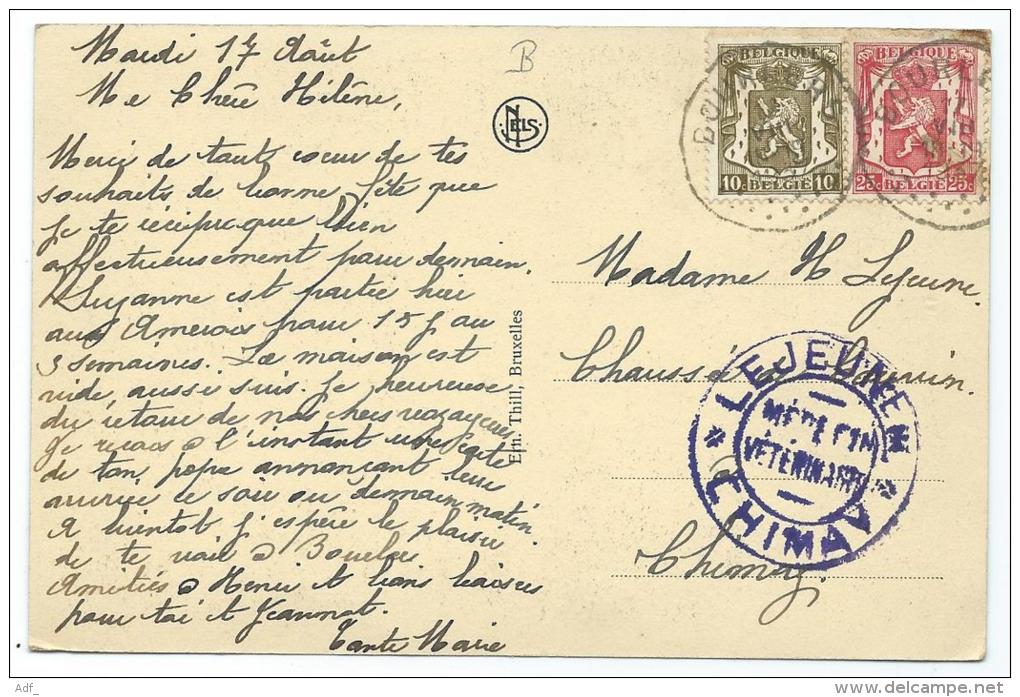 Mardi 17 Août
Ma Chère Hélène,
Merci de tout coeur de tes
souhaits de bonne fête que
je te réciproque bien
affectueusement pour demain.
Suzanne est partie hier
aux Amerois pour 15 j au
3 semaines. La maison est
vide, aussi suis-je heureuse
du retour de nos chers voyageurs
Je reçois à l'instant une carte
de ton papa annonçant leur
arrivée ce soir ou demain matin.
A bientôt j'espère le plaisir
de te voir à
Amitiés à Henri et bons baisers
pour toi et Jeannot.
Tante Marie
B
NELS
Ern. Thill, Bruxelles
BELGIQUE
10c BELGIE 10c
BELGIQUE
25c BELGIE 25c
Madame H Lejeune.
Chaussée de Couvin.
Chimay.
LEJEUNE H
MÉDECIN
VÉTÉRINAIRE
* CHIMAY *
Adf_
delcampe.net